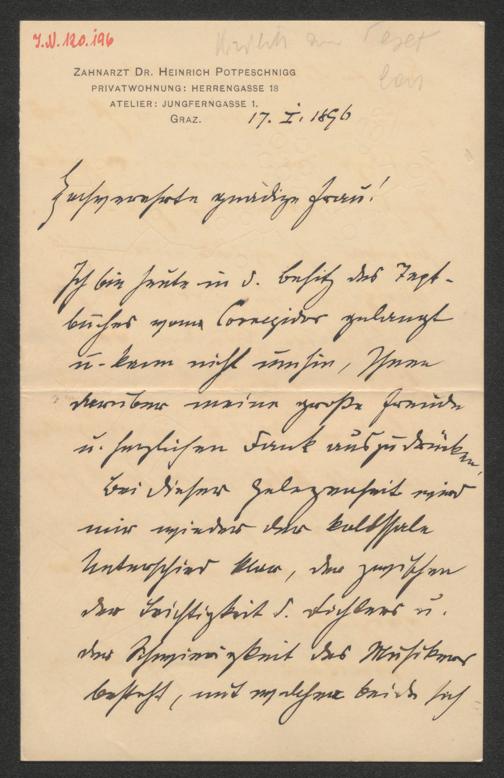 I.N. 120.196
ZAHNARZT DR. HEINRICH POTPESCHNIGG
PRIVATWOHNUNG: HERRENGASSE 18
ATELIER: JUNGFERNGASSE 1.
GRAZ.
17. I. 1896
Hochverehrte gnädige Frau!
Ich bin heute in d. Besitz des Text-
buches vom Corregidor gelangt
u. kann nicht umhin, Ihnen
darüber meine große Freude
u. herzlichen Dank auszudrücken.
Bei dieser Gelegenheit wird
mir wieder der kolossale
Unterschied klar, der zwischen
der Leichtigkeit d. Dichters u.
der Schwierigkeit des Musikers
besteht, mit welcher beide sich